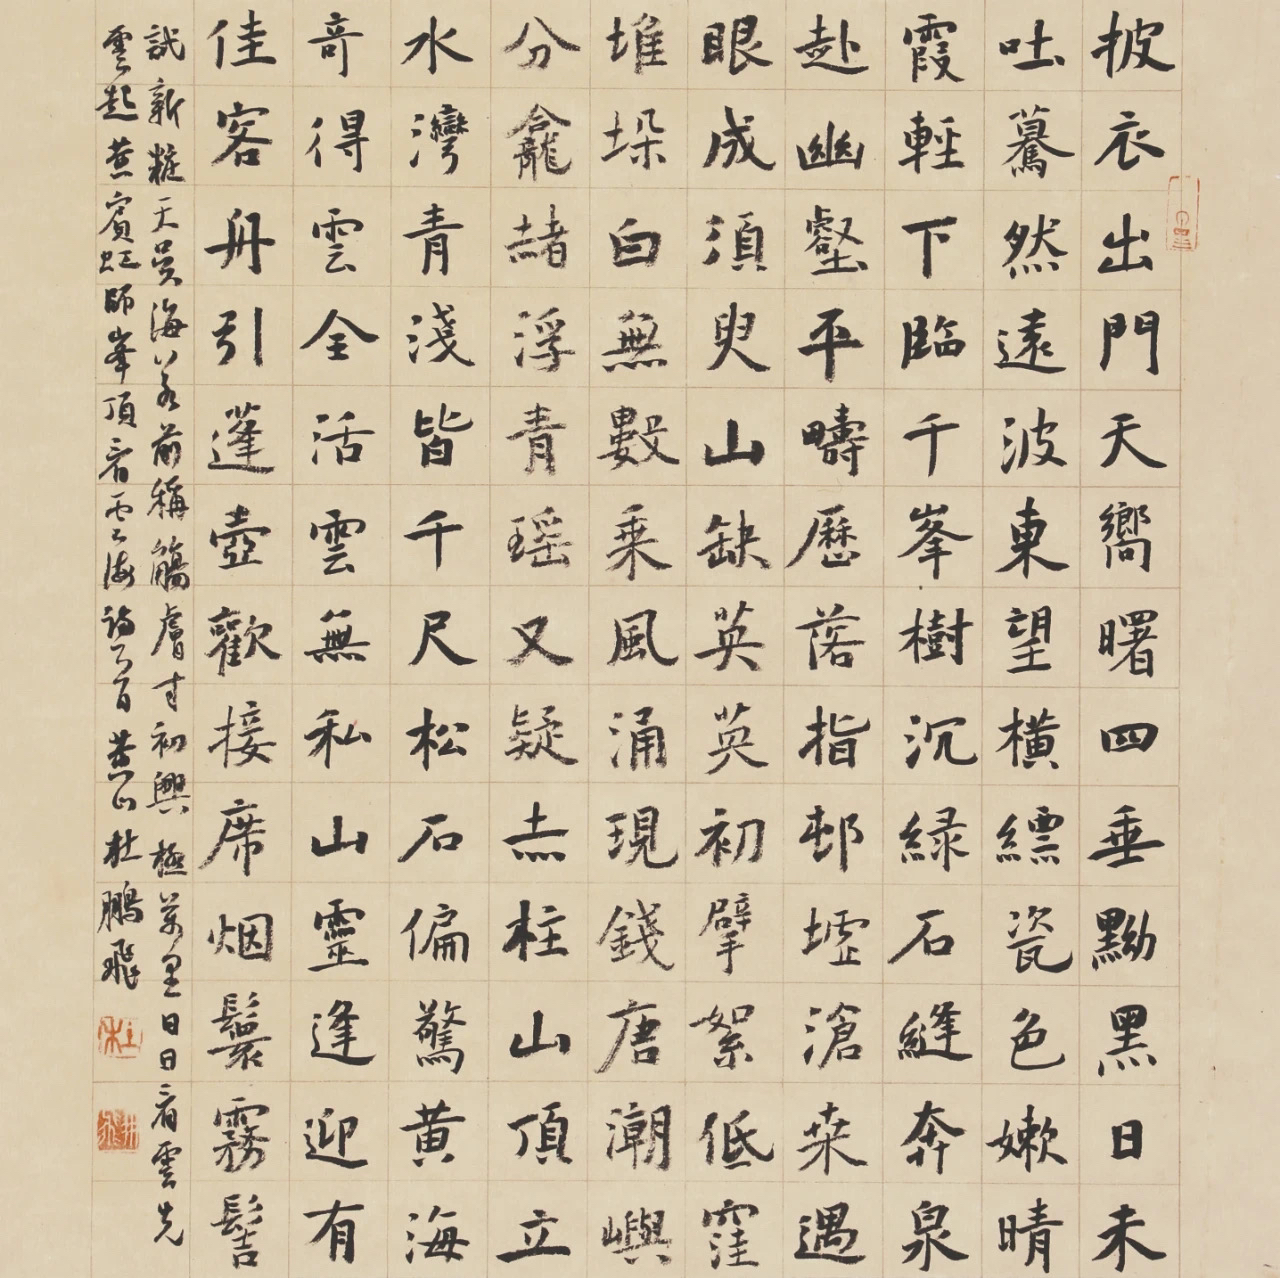 披衣出門天嚮曙四垂黝黑日未
吐驀然遠波東望橫縹瓷色嫩晴
霞輕下臨千峯樹沉緑石縫奔泉
赴幽壑平疇歷落指邨墟滄桒遇
眼成須臾山缺英英初擘絮低窪
堆垛白無數乘風涌現錢唐潮嶼
分龕赭浮青瑶又疑赤柱山頂立
水灣青淺皆千尺松石偏驚黄海
奇得雲全活雲無私山靈逢迎有
佳客舟引蓬壺歡接席烟鬟霧髻
試新糚天吳海若前稱觴膚寸初興極萬里日日看雲先
雲起黄賓虹師峯頂看雲海詩一首黄山杜鵬飛